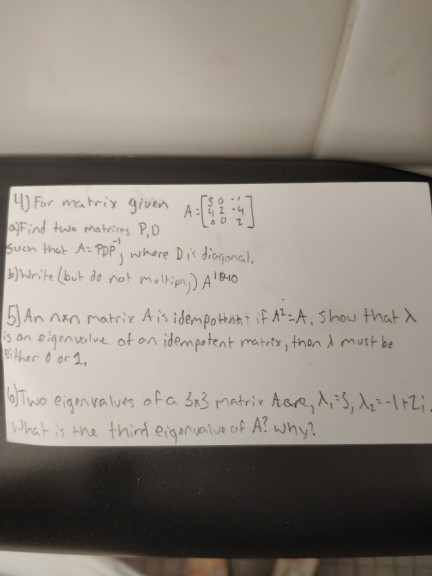 4) For matrix given A = [3 0 -1
4 2 -4
0 0 2]
a) Find two matrices P, D
such that A = PDP^-1, where D is diagonal.
b) Write (but do not multiply) A^1840
5) An nxn matrix A is idempotent if A^2=A. Show that λ
is an eigenvalue of an idempotent matrix, then λ must be
either 0 or 1.
6) Two eigenvalues of a 3x3 matrix A are, λ1=3, λ2=-1+2i.
What is the third eigenvalue of A? Why?